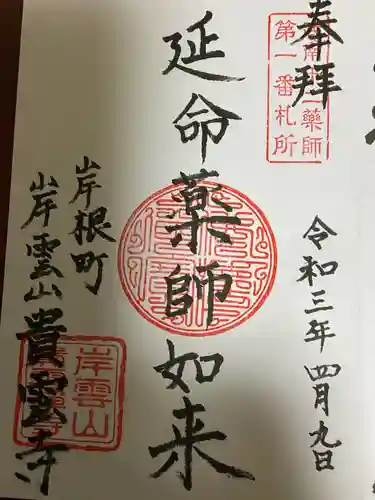 奉拝
第一番札所
令和三年四月九日
延命藥師如来
岸根町
岸雲山
貴雲寺
岸雲山